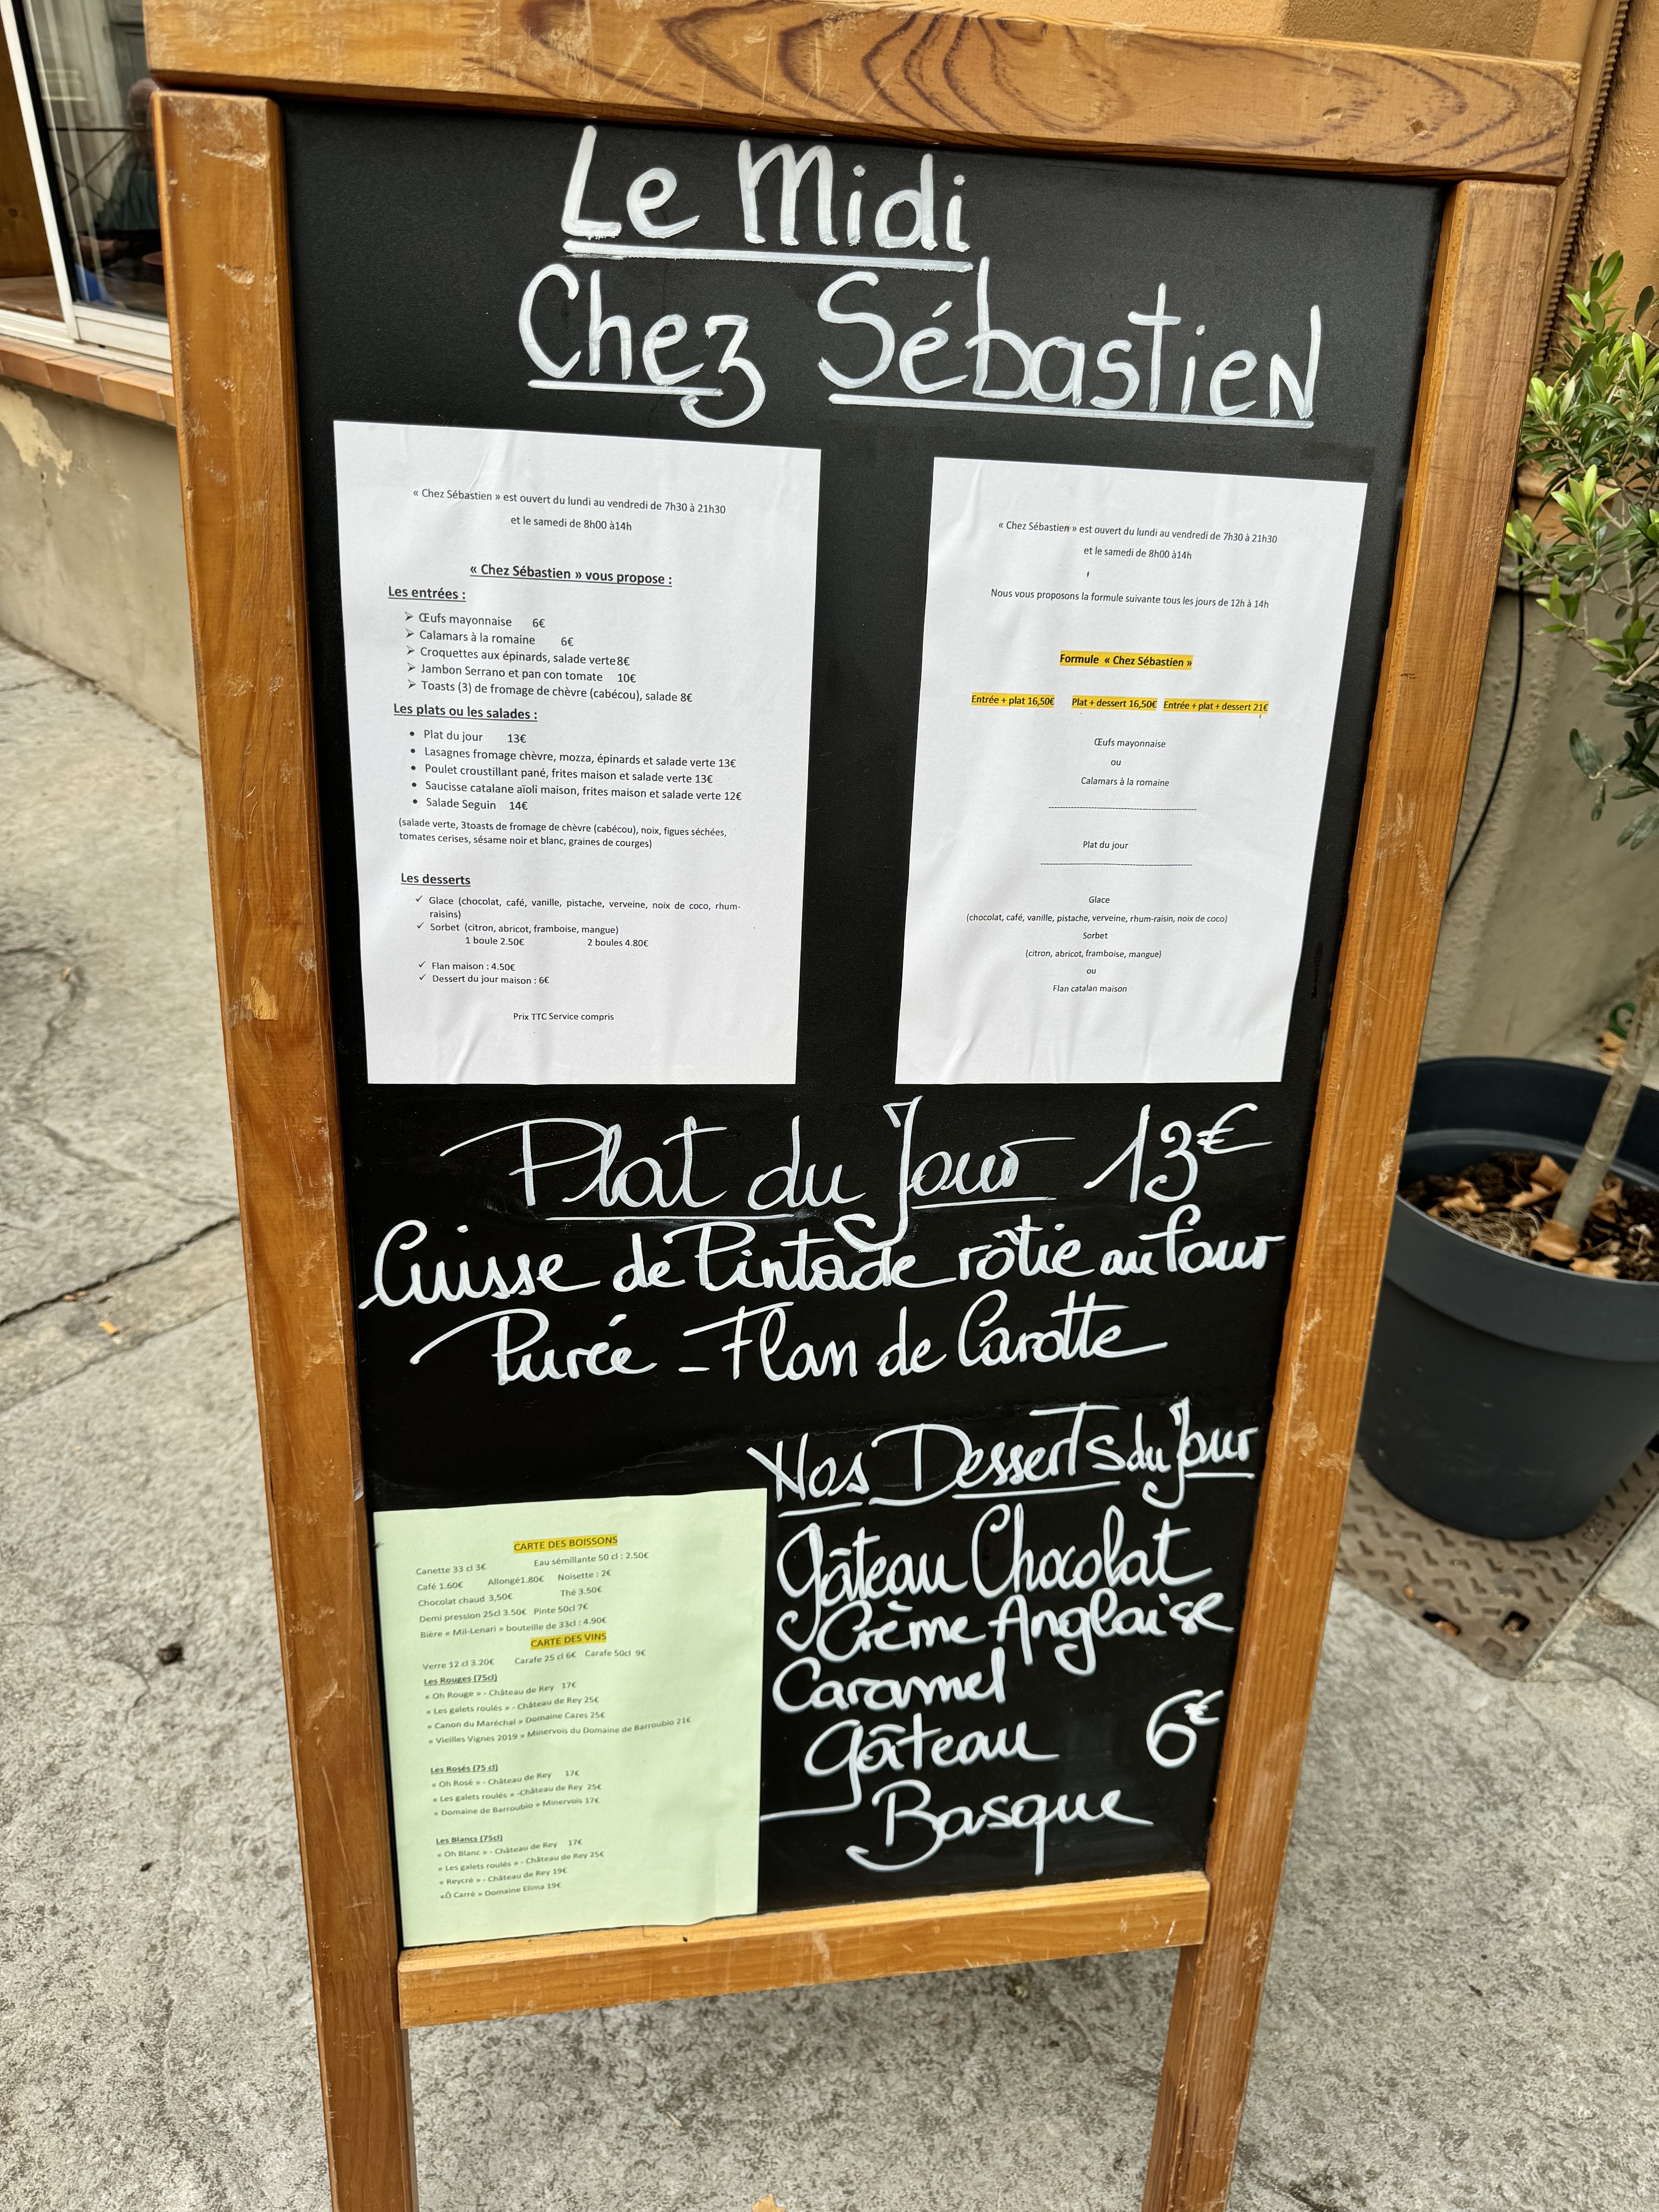 Le Midi
Chez Sébastien
« Chez Sébastien » est ouvert du lundi au vendredi de 7h30 à 21h30
et le samedi de 8h00 à14h
« Chez Sébastien » vous propose :
Les entrées :
Œufs mayonnaise 6€
Calamars à la romaine 6€
Croquettes aux épinards, salade verte8€
Jambon Serrano et pan con tomate 10€
Toasts (3) de fromage de chèvre (cabécou), salade 8€
Les plats ou les salades :
Plat du jour 13€
Lasagnes fromage chèvre, mozza, épinards et salade verte 13€
Poulet croustillant pané, frites maison et salade verte 13€
Saucisse catalane aïoli maison, frites maison et salade verte 12€
Salade Seguin 14€
(salade verte, 3toasts de fromage de chèvre (cabécou), noix, figues séchées,
tomates cerises, sésame noir et blanc, graines de courges)
Les desserts
Glace (chocolat, café, vanille, pistache, verveine, noix de coco, rhum-
raisins)
Sorbet (citron, abricot, framboise, mangue)
1 boule 2.50€ 2 boules 4.80€
Flan maison : 4.50€
Dessert du jour maison : 6€
Prix TTC Service compris
« Chez Sébastien » est ouvert du lundi au vendredi de 7h30 à 21h30
et le samedi de 8h00 à14h
Nous vous proposons la formule suivante tous les jours de 12h à 14h
Formule « Chez Sébastien »
Entrée + plat 16,50€ Plat + dessert 16,50€ Entrée + plat + dessert 21€
Œufs mayonnaise
ou
Calamars à la romaine
Plat du jour
Glace
(chocolat, café, vanille, pistache, verveine, rhum-raisin, noix de coco)
Sorbet
(citron, abricot, framboise, mangue)
ou
Flan catalan maison
Plat du Jour 13€
Cuisse de Pintade rôtie au four
Purée - Flan de Carotte
Nos Desserts du Jour
Gâteau Chocolat
Crème Anglaise
Caramel
Gâteau 6€
Basque
CARTE DES BOISSONS
Canette 33 cl 3€ Eau sémillante 50 cl : 2.50€
Café 1.60€ Allongé1.80€ Noisette : 2€
Chocolat chaud 3,50€ Thé 3.50€
Demi pression 25cl 3.50€ Pinte 50cl 7€
Bière « Mil-Lenari » bouteille de 33cl : 4.90€
CARTE DES VINS
Verre 12 cl 3.20€ Carafe 25 cl 6€ Carafe 50cl 9€
Les Rouges (75cl)
« Oh Rouge » - Château de Rey 17€
« Les galets roulés » - Château de Rey 25€
« Canon du Maréchal » Domaine Cazes 25€
« Vieilles Vignes 2019 » Minervois du Domaine de Barroubio 21€
Les Rosés (75 cl)
« Oh Rosé » - Château de Rey 17€
« Les galets roulés » -Château de Rey 25€
« Domaine de Barroubio » Minervois 17€
Les Blancs (75cl)
« Oh Blanc » - Château de Rey 17€
« Les galets roulés » - Château de Rey 25€
« Reycré » - Château de Rey 19€
«Ô Carré » Domaine Elima 19€